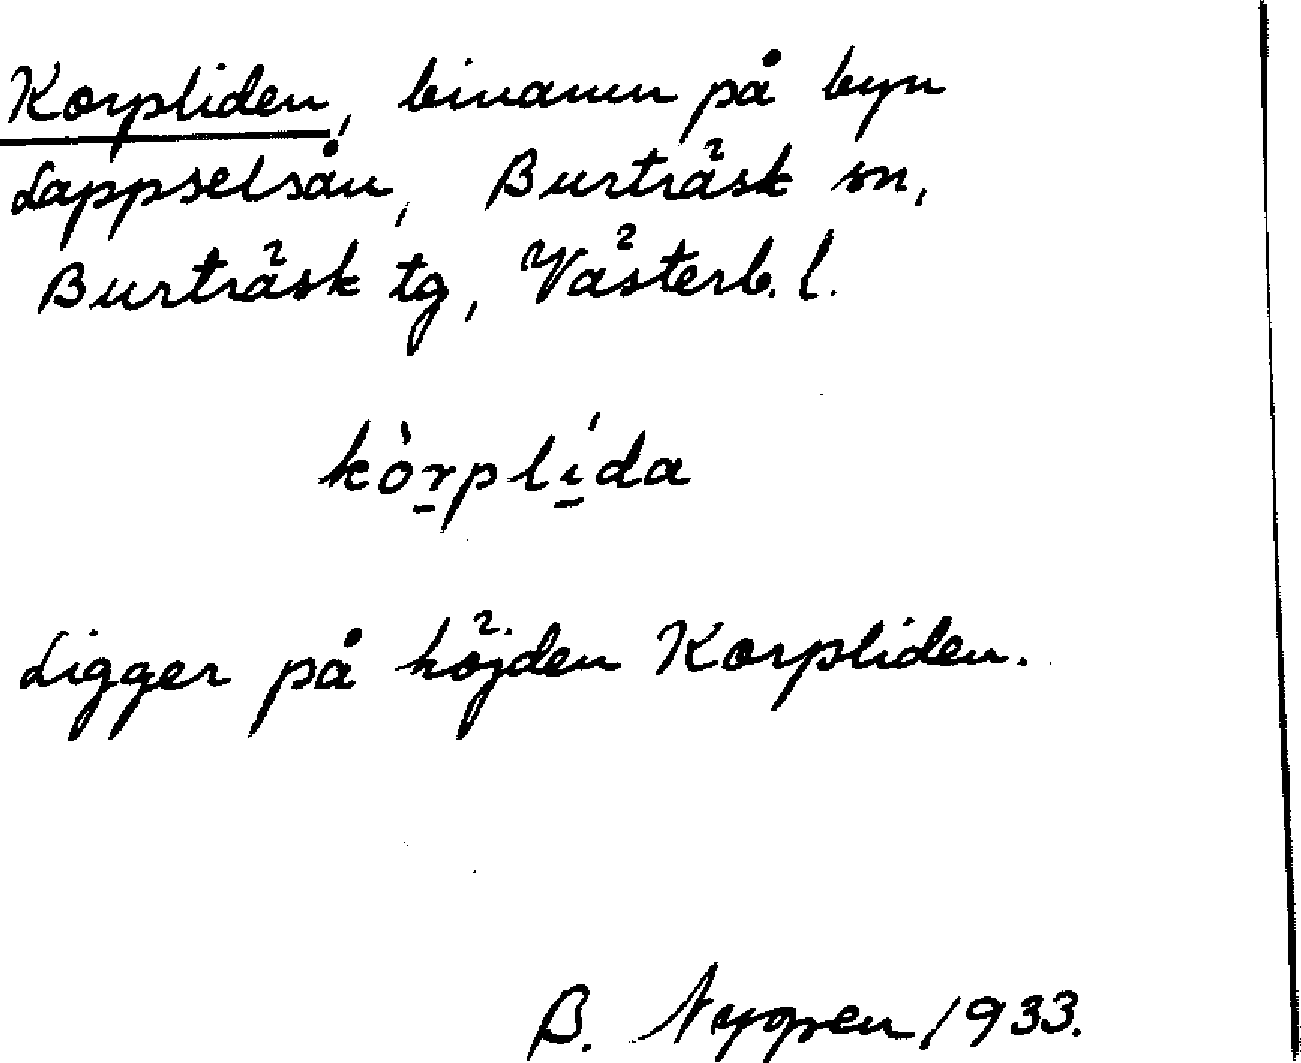 Korpliden, binamn på byn
Lappselsån, Burträsk sn,
Burträsk tg, Västerb. l.
kòr̲plí̲da
Ligger på höjden Korpliden.
B. Nygren 1933.